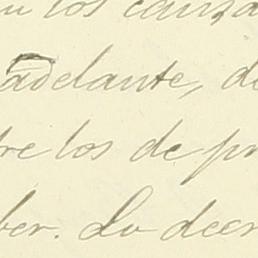 los
adelante, de
re los de pr
ber. Lo decr